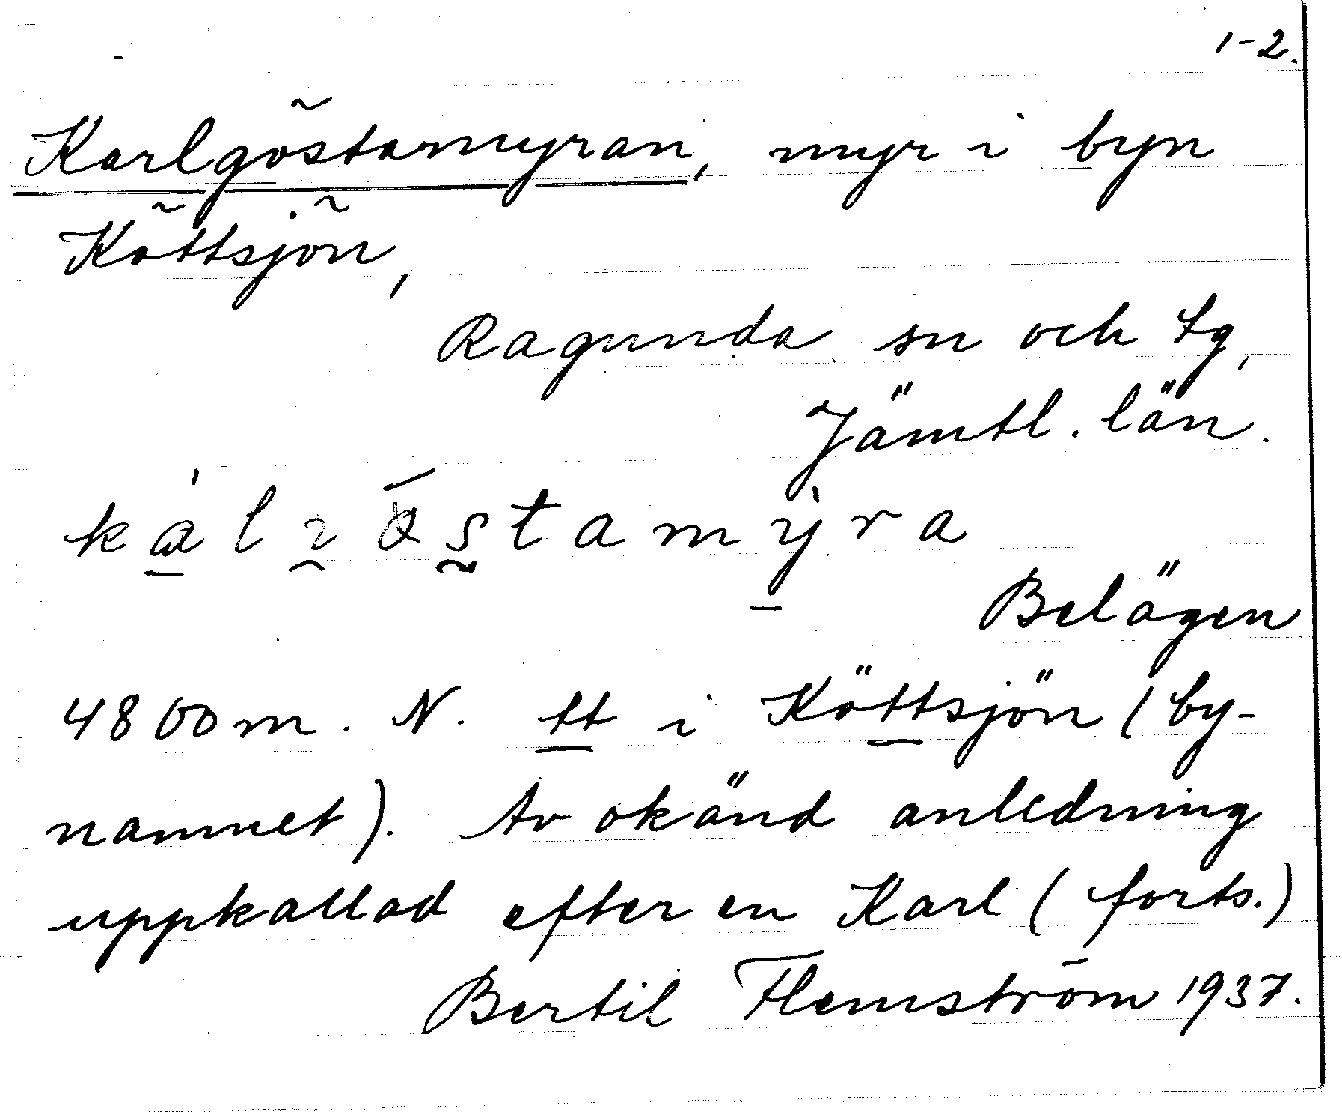 1-2.
Karlgöstamyran, myr i byn
Köttsjön,
Ragunda sn och tg,
Jämtl. län.
Belägen
4800 m. N. tt i Köttsjön (by-
namnet). Av okänd anledning
uppkallad efter en Karl (forts.)
Bertil Flemström 1937.